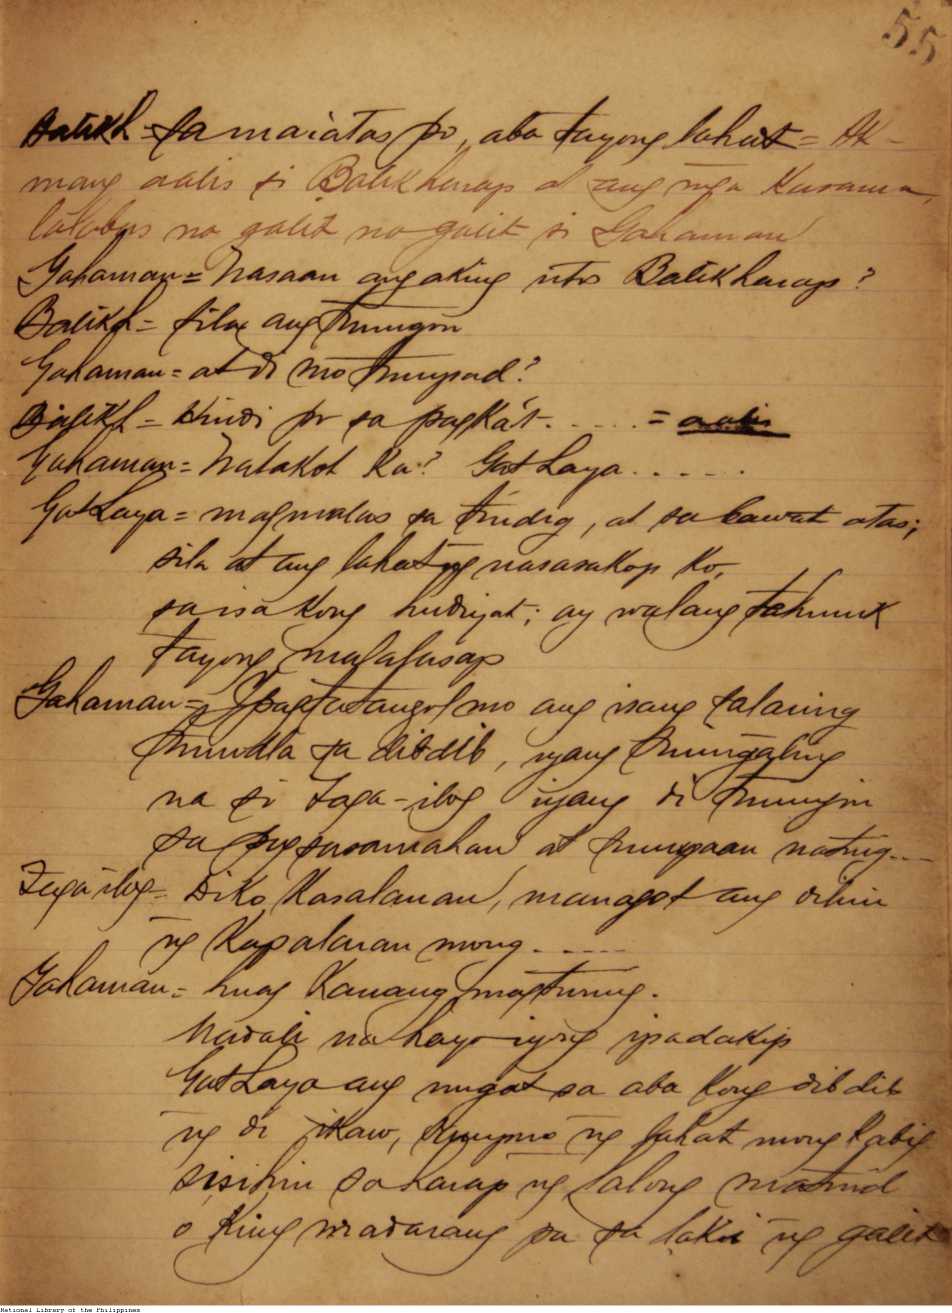 55
Batikh = Sa maiatas po, aba tayong lahat = Ak-
mang aalis si Batikharap at ang mga Kasama,
lalabas na galit na galit si Gahaman
Gahaman = Nasaan ang aking utos Batikharap?
Batikh = sila ang tumugon
Gahaman = at di mo tinupad?
Batikh = Hindi po sa pagka't. . . . . = aalis
Gahaman = Natakot Ka? Gat Laya. . . . . .
GatLaya = magmalas sa tindig, at sa bawat atas;
sila at ang lahat ng nasasakop Ko,
sa isa Kong hudyat; ay walang
tayong
Gahaman = Ipagtatangol mo ang isang
sa dibdib, iyang
na si Taga-ilog iyang di
sa pagsasamahan at nating...
Taga ilog = Diko Kasalanan, managot ang dilim
ng Kapalaran mong . . . . .
Gahaman = huag Kanang magturing.
Madali na hayo iyong ipadakip
GatLaya ang sa aba Kong dibdib
ng di ikaw, ng lahat mong Kabig
sisihin sa harap ng lalong
o Kung madarang pa sa laki ng galit
National Library of the Philippines